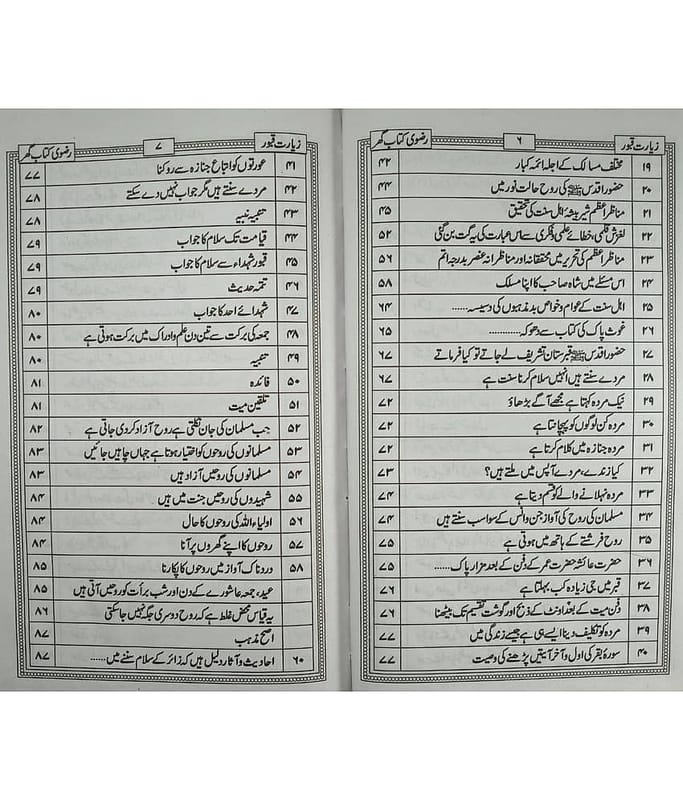 زیارت قبور ۶ رضوی کتاب گھر
۱۹ مختلف مسالک کے اجلہ ائمہ کبار ۴۲
۲۰ حضور اقدس ﷺ کی روح حالت نور میں ۴۴
۲۱ مناظر اعظم شیر بیشۂ اہل سنت کی تحقیق ۴۵
۲۲ لغزش قلمی، خطائے علمی و فکری سے اس عبارت کی یہ گت بن گئی ۵۲
۲۳ مناظر اعظم کی تحریر میں محققانہ اور مناظرانہ عنصر بدرجہ اتم ۵۶
۲۴ اس مسئلے میں شاہ صاحب کا اپنا مسلک ۵۸
۲۵ اہل سنت کے عوام و خواص بد مذہبوں کی دسیسہ...... ۶۴
۲۶ غوث پاک کی کتاب سے دھوکہ............ ۶۵
۲۷ حضور اقدس ﷺ قبرستان تشریف لے جاتے تو کیا فرماتے ۶۷
۲۸ مردے سنتے ہیں انہیں سلام کرنا سنت ہے ۶۷
۲۹ نیک مردہ کہتا ہے مجھے آگے بڑھاؤ ۷۲
۳۰ مردہ کن لوگوں کو پہچانتا ہے ۷۲
۳۱ مردہ جنازہ میں کلام کرتا ہے ۷۲
۳۲ کیا زندے، مردے آپس میں ملتے ہیں؟ ۷۳
۳۳ مردہ نہلانے والے کو قسم دیتا ہے ۷۴
۳۴ مسلمان کی روح کی آواز جن و انس کے سوا سب سنتے ہیں ۷۴
۳۵ روح فرشتے کے ہاتھ میں ہوتی ہے ۷۵
۳۶ حضرت عائشہ حضرت عمر کے دفن کے بعد مزار پاک...... ۷۵
۳۷ قبر میں جی زیادہ کب بہلتا ہے ۷۶
۳۸ دفن میت کے بعد اونٹ کے ذبح اور گوشت تقسیم تک بیٹھنا ۷۶
۳۹ مردہ کو تکلیف دینا ایسے ہی ہے جیسے زندگی میں ۷۷
۴۰ سورۂ بقر کی اول و آخر آیتیں پڑھنے کی وصیت ۷۷
زیارت قبور ۷ رضوی کتاب گھر
۴۱ عورتوں کو اتباع جنازہ سے روکنا ۷۷
۴۲ مردے سنتے ہیں مگر جواب نہیں دے سکتے ۷۸
۴۳ تنبیہ نبیہ ۷۸
۴۴ قیامت تک سلام کا جواب ۷۹
۴۵ قبور شہداء سے سلام کا جواب ۷۹
۴۶ تتمہ حدیث ۷۹
۴۷ شہدائے احد کا جواب ۸۰
۴۸ جمعہ کی برکت سے تین دن علم و ادراک میں برکت ہوتی ہے ۸۰
۴۹ تنبیہ ۸۰
۵۰ فائدہ ۸۱
۵۱ تلقین میت ۸۱
۵۲ جب مسلمان کی جان نکلتی ہے روح آزاد کر دی جاتی ہے ۸۲
۵۳ مسلمانوں کی روحوں کو اختیار ہوتا ہے جہاں چاہیں جائیں ۸۳
۵۴ مسلمانوں کی روحیں آزاد ہیں ۸۳
۵۵ شہیدوں کی روحیں جنت میں ہیں ۸۴
۵۶ اولیاء اللہ کی روحوں کا حال ۸۴
۵۷ روحوں کا اپنے گھروں پر آنا ۸۴
۵۸ دردناک آواز میں روحوں کا پکارنا ۸۵
عید، جمعہ عاشورے کے دن اور شب برأت کو روحیں آتی ہیں ۸۵
یہ قیاس محض غلط ہے کہ روح دوسری جگہ نہیں جا سکتی ۸۶
اصح مذہب ۸۷
۶۰ احادیث و آثار دلیل ہیں کہ زائر کے سلام سننے میں...... ۸۷